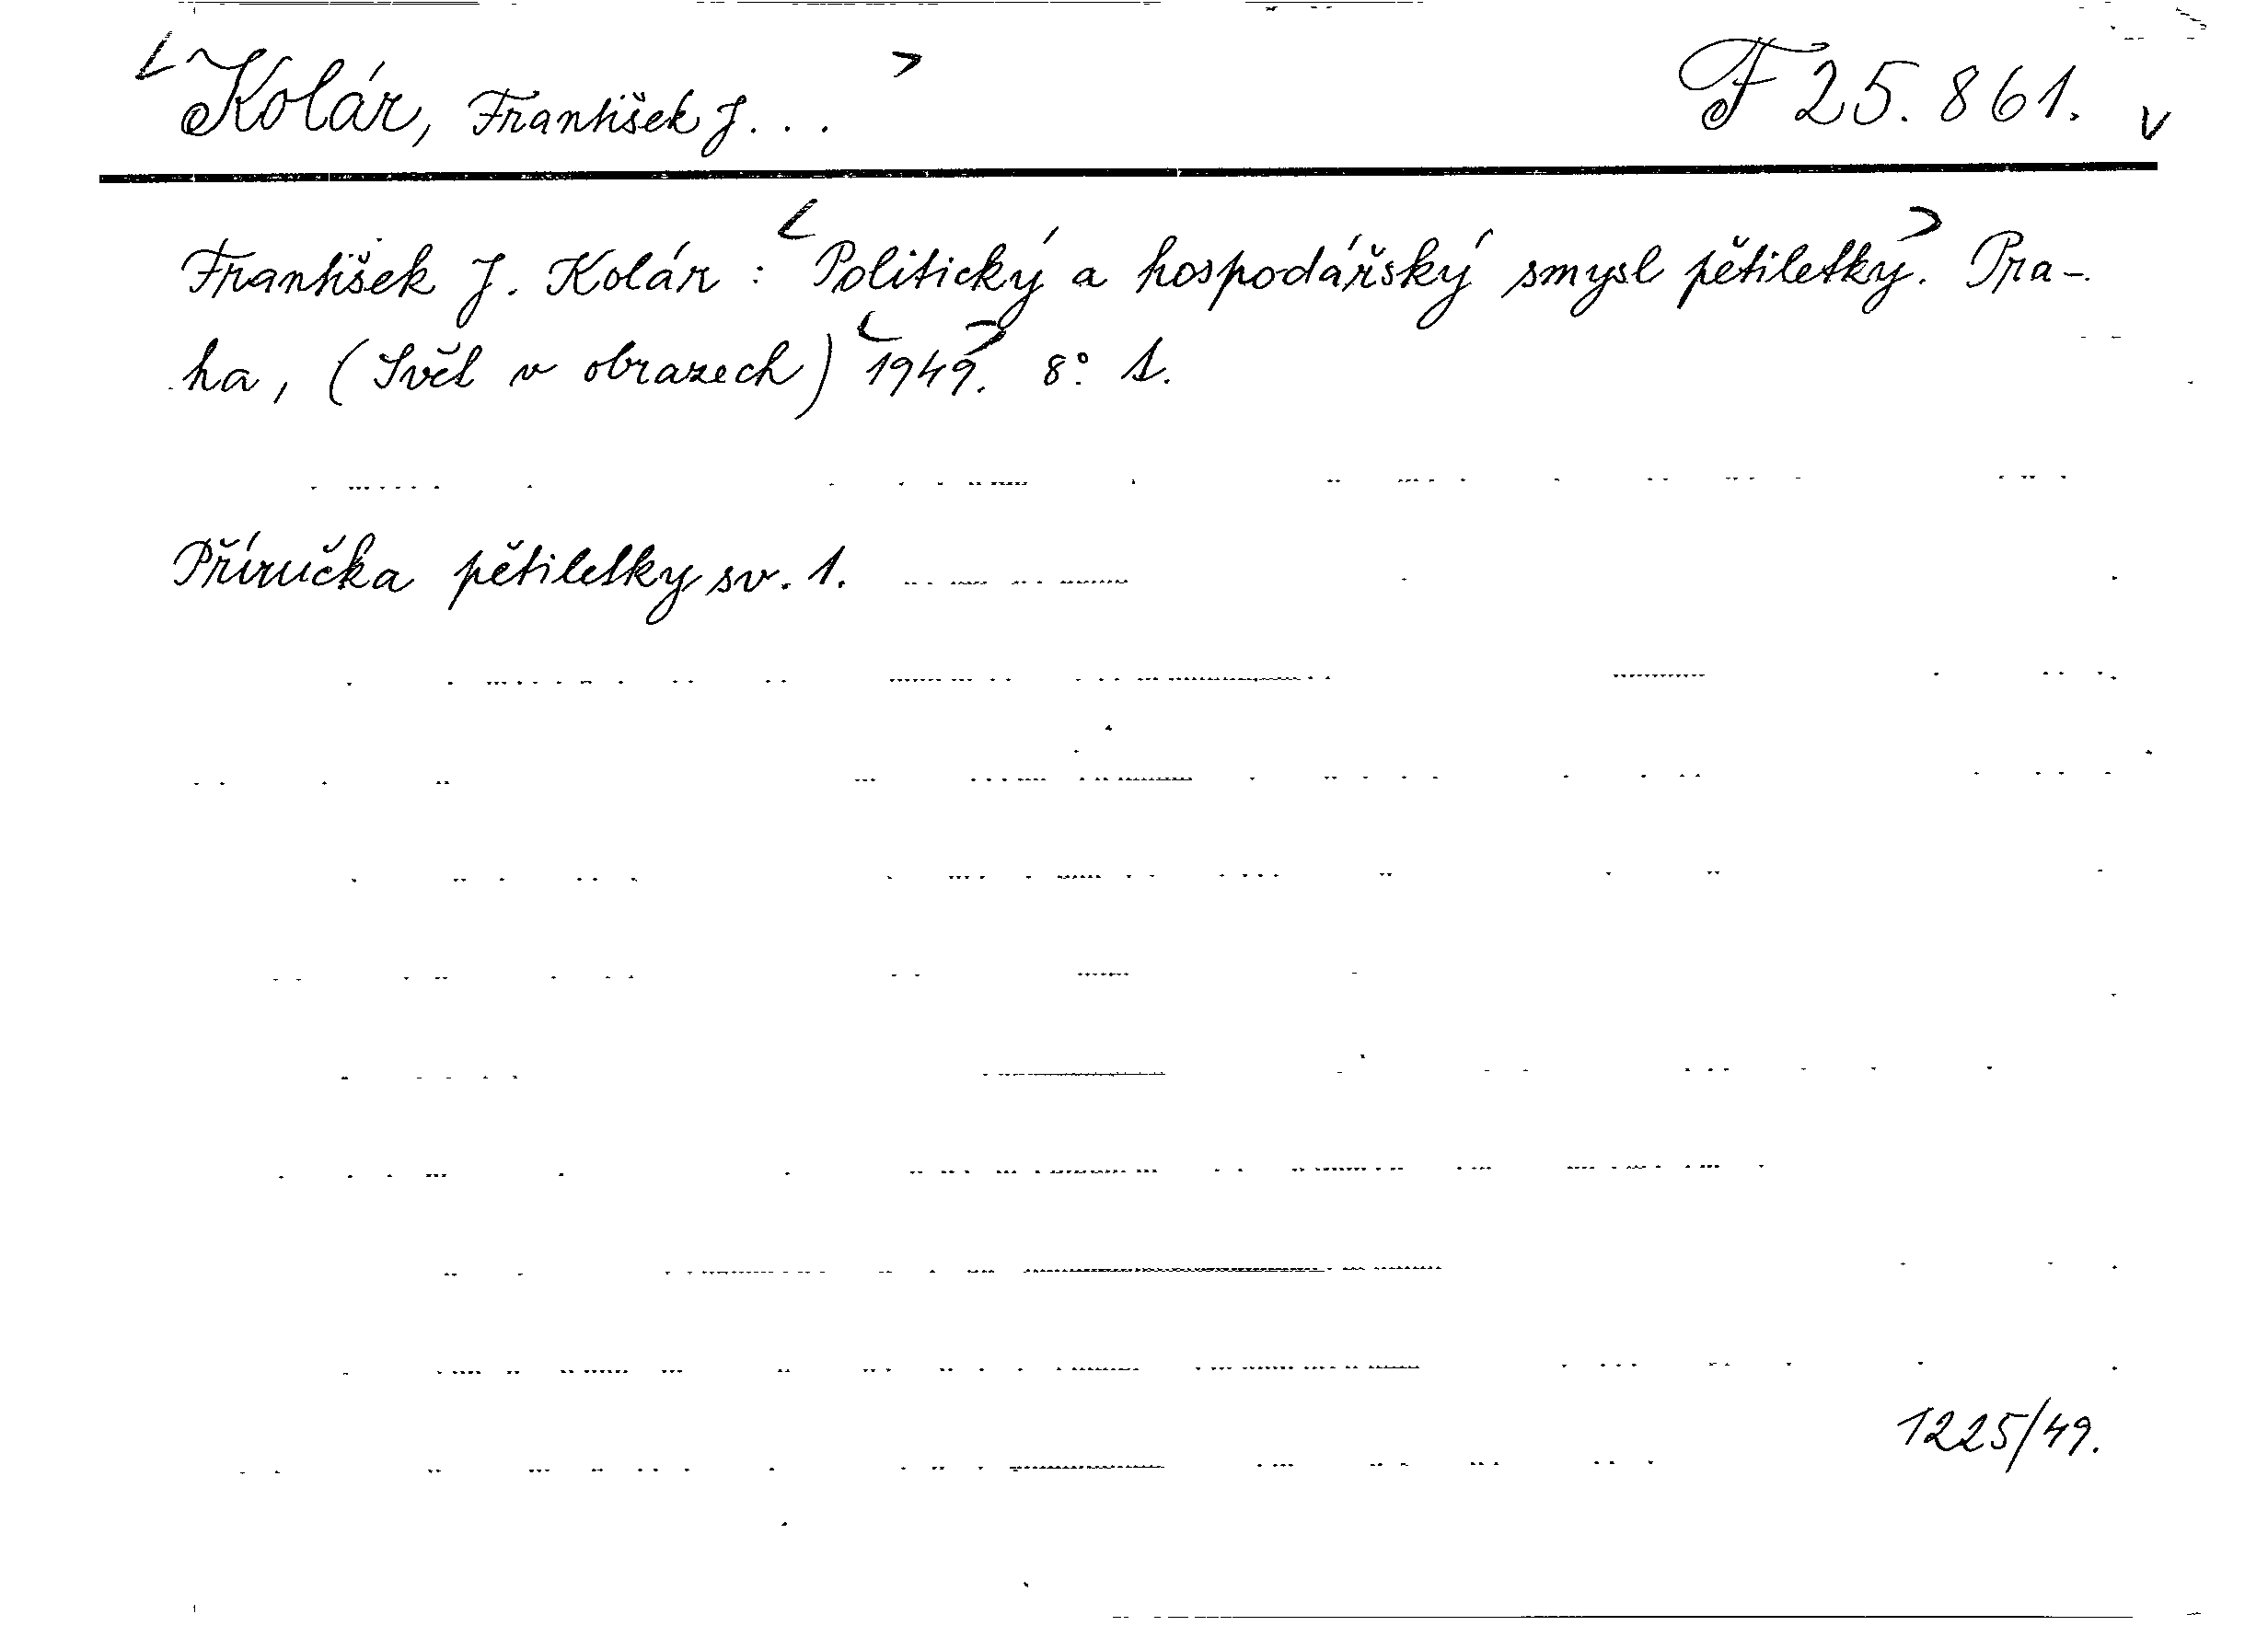 <Kolár, František J... >
F 25.861. v
František J. Kolár : <Politický a hospodářský smysl pětiletky>. Pra-
ha, (Svět v obrazech) <1949>. 8° S.
Příručka pětiletky sv. 1.
1225/49.